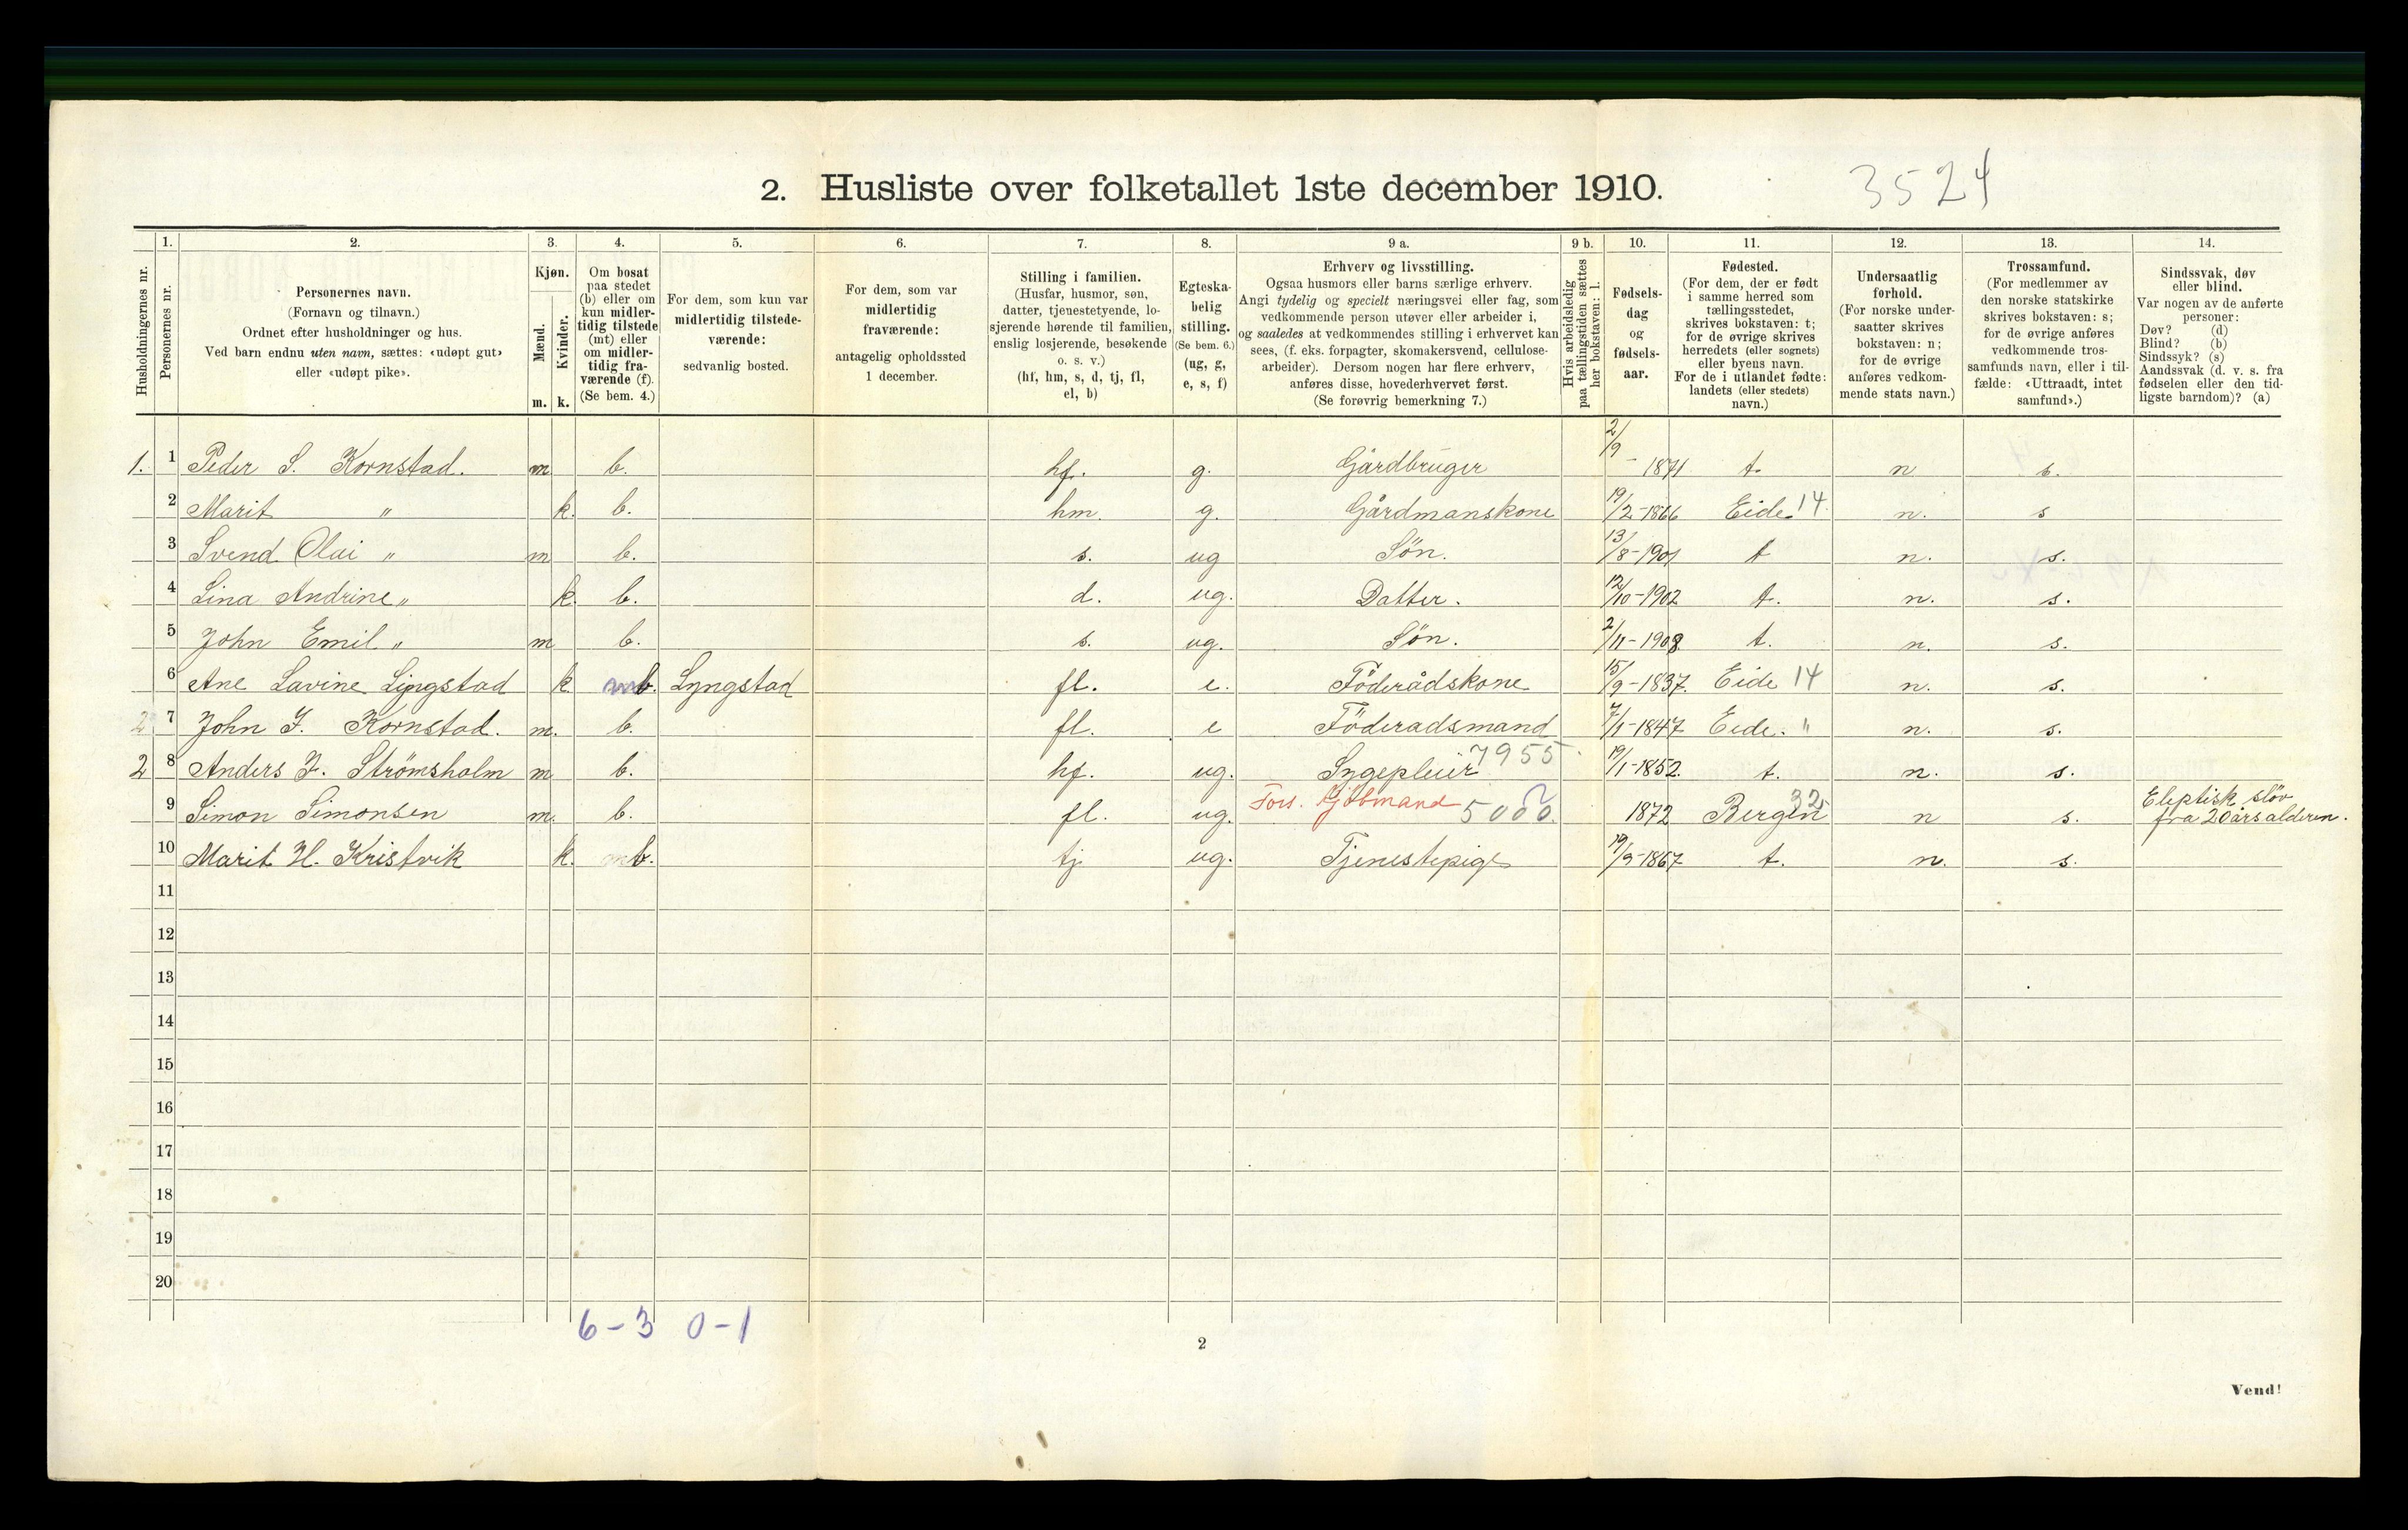 2. Husliste over folketallet 1ste december 1910.
3524
Husholdningernes nr.
1.
Personernes nr.
2.
Personernes navn.
(Fornavn og tilnavn.)
Ordnet efter husholdninger og hus.
Ved barn endnu uten navn, sættes: «udøpt gut»
eller «udøpt pike».
3.
Kjøn.
Mænd.
Kvinder.
m. k.
4.
Om bosat
paa stedet
(b) eller om
kun midler-
tidig tilstede
(mt) eller
om midler-
tidig fra-
værende (f).
(Se bem. 4.)
5.
For dem, som kun var
midlertidig tilstede-
værende:
sedvanlig bosted.
6.
For dem, som var
midlertidig
fraværende:
antagelig opholdssted
1 december.
7.
Stilling i familien.
(Husfar, husmor, søn,
datter, tjenestetyende, lo-
sjerende hørende til familien,
enslig losjerende, besøkende
o. s. v.)
(hf, hm, s, d, tj, fl,
el, b)
8.
Egteska-
belig
stilling.
(Se bem. 6.)
(ug, g,
e, s, f)
9 a.
Erhverv og livsstilling.
Ogsaa husmors eller barns særlige erhverv.
Angi tydelig og specielt næringsvei eller fag, som
vedkommende person utøver eller arbeider i,
og saaledes at vedkommendes stilling i erhvervet kan
sees, (f. eks. forpagter, skomakersvend, cellulose-
arbeider). Dersom nogen har flere erhverv,
anføres disse, hovederhvervet først.
(Se forøvrig bemerkning 7.)
9 b.
Hvis arbeidsledig
paa tællingstiden sættes
her bokstaven: l.
10.
Fødsels-
dag
og
fødsels-
aar.
11.
Fødested.
(For dem, der er født
i samme herred som
tællingsstedet,
skrives bokstaven: t;
for de øvrige skrives
herredets (eller sognets)
eller byens navn.
For de i utlandet fødte:
landets (eller stedets)
navn.)
12.
Undersaatlig
forhold.
(For norske under-
saatter skrives
bokstaven: n;
for de øvrige
anføres vedkom-
mende stats navn.)
13.
Trossamfund.
(For medlemmer av
den norske statskirke
skrives bokstaven: s;
for de øvrige anføres
vedkommende tros-
samfunds navn, eller i til-
fælde: «Uttraadt, intet
samfund».)
14.
Sindssvak, døv
eller blind.
Var nogen av de anførte
personer:
Døv? (d)
Blind? (b)
Sindssyk? (s)
Aandssvak (d. v. s. fra
fødselen eller den tid-
ligste barndom)? (a)
1. 1 Peder S. Kornstad. m b. hf. g. Gårdbruger 2/9 - 1871 t. n s.
2 Marit " k. b. hm. g. Gårdmanskone 19/2-1866 Eide 14 n. s
3 Svend Olai " m b. s. ug Søn. 13/8-1901 t n. s.
4 Lina Andrine " k. b. d. ug. Datter. 12/10-1902 t. n. s.
5 John Emil " m b. s. ug. Søn. 2/11-1908 t. n. s.
6 Ane Lavine Lyngstad k b. Lyngstad fl. e. Föderådskone 15/9-1837. Eide 14 n. s.
2 7 John J. Kornstad. m. b. fl. e Föderadsmand 7/1-1847 Eide. " n. s.
2 8 Anders J. Strømsholm m b. hf. ug. Sygepleier 7955 19/1-1852. t. n. s.
9 Simon Simonsen m. b. fl. ug. Fors. Kjøbmand 5000. 1872 Bergen 32 n s. Eleptisk sløv
fra 20 års alderen.
10 Marit H. Kristvik k. b. tj ug. Tjenestepige 19/9-1867 t. n. s.
11
12
13
14
15
16
17
18
19
20
6-3 0-1
2
Vend!